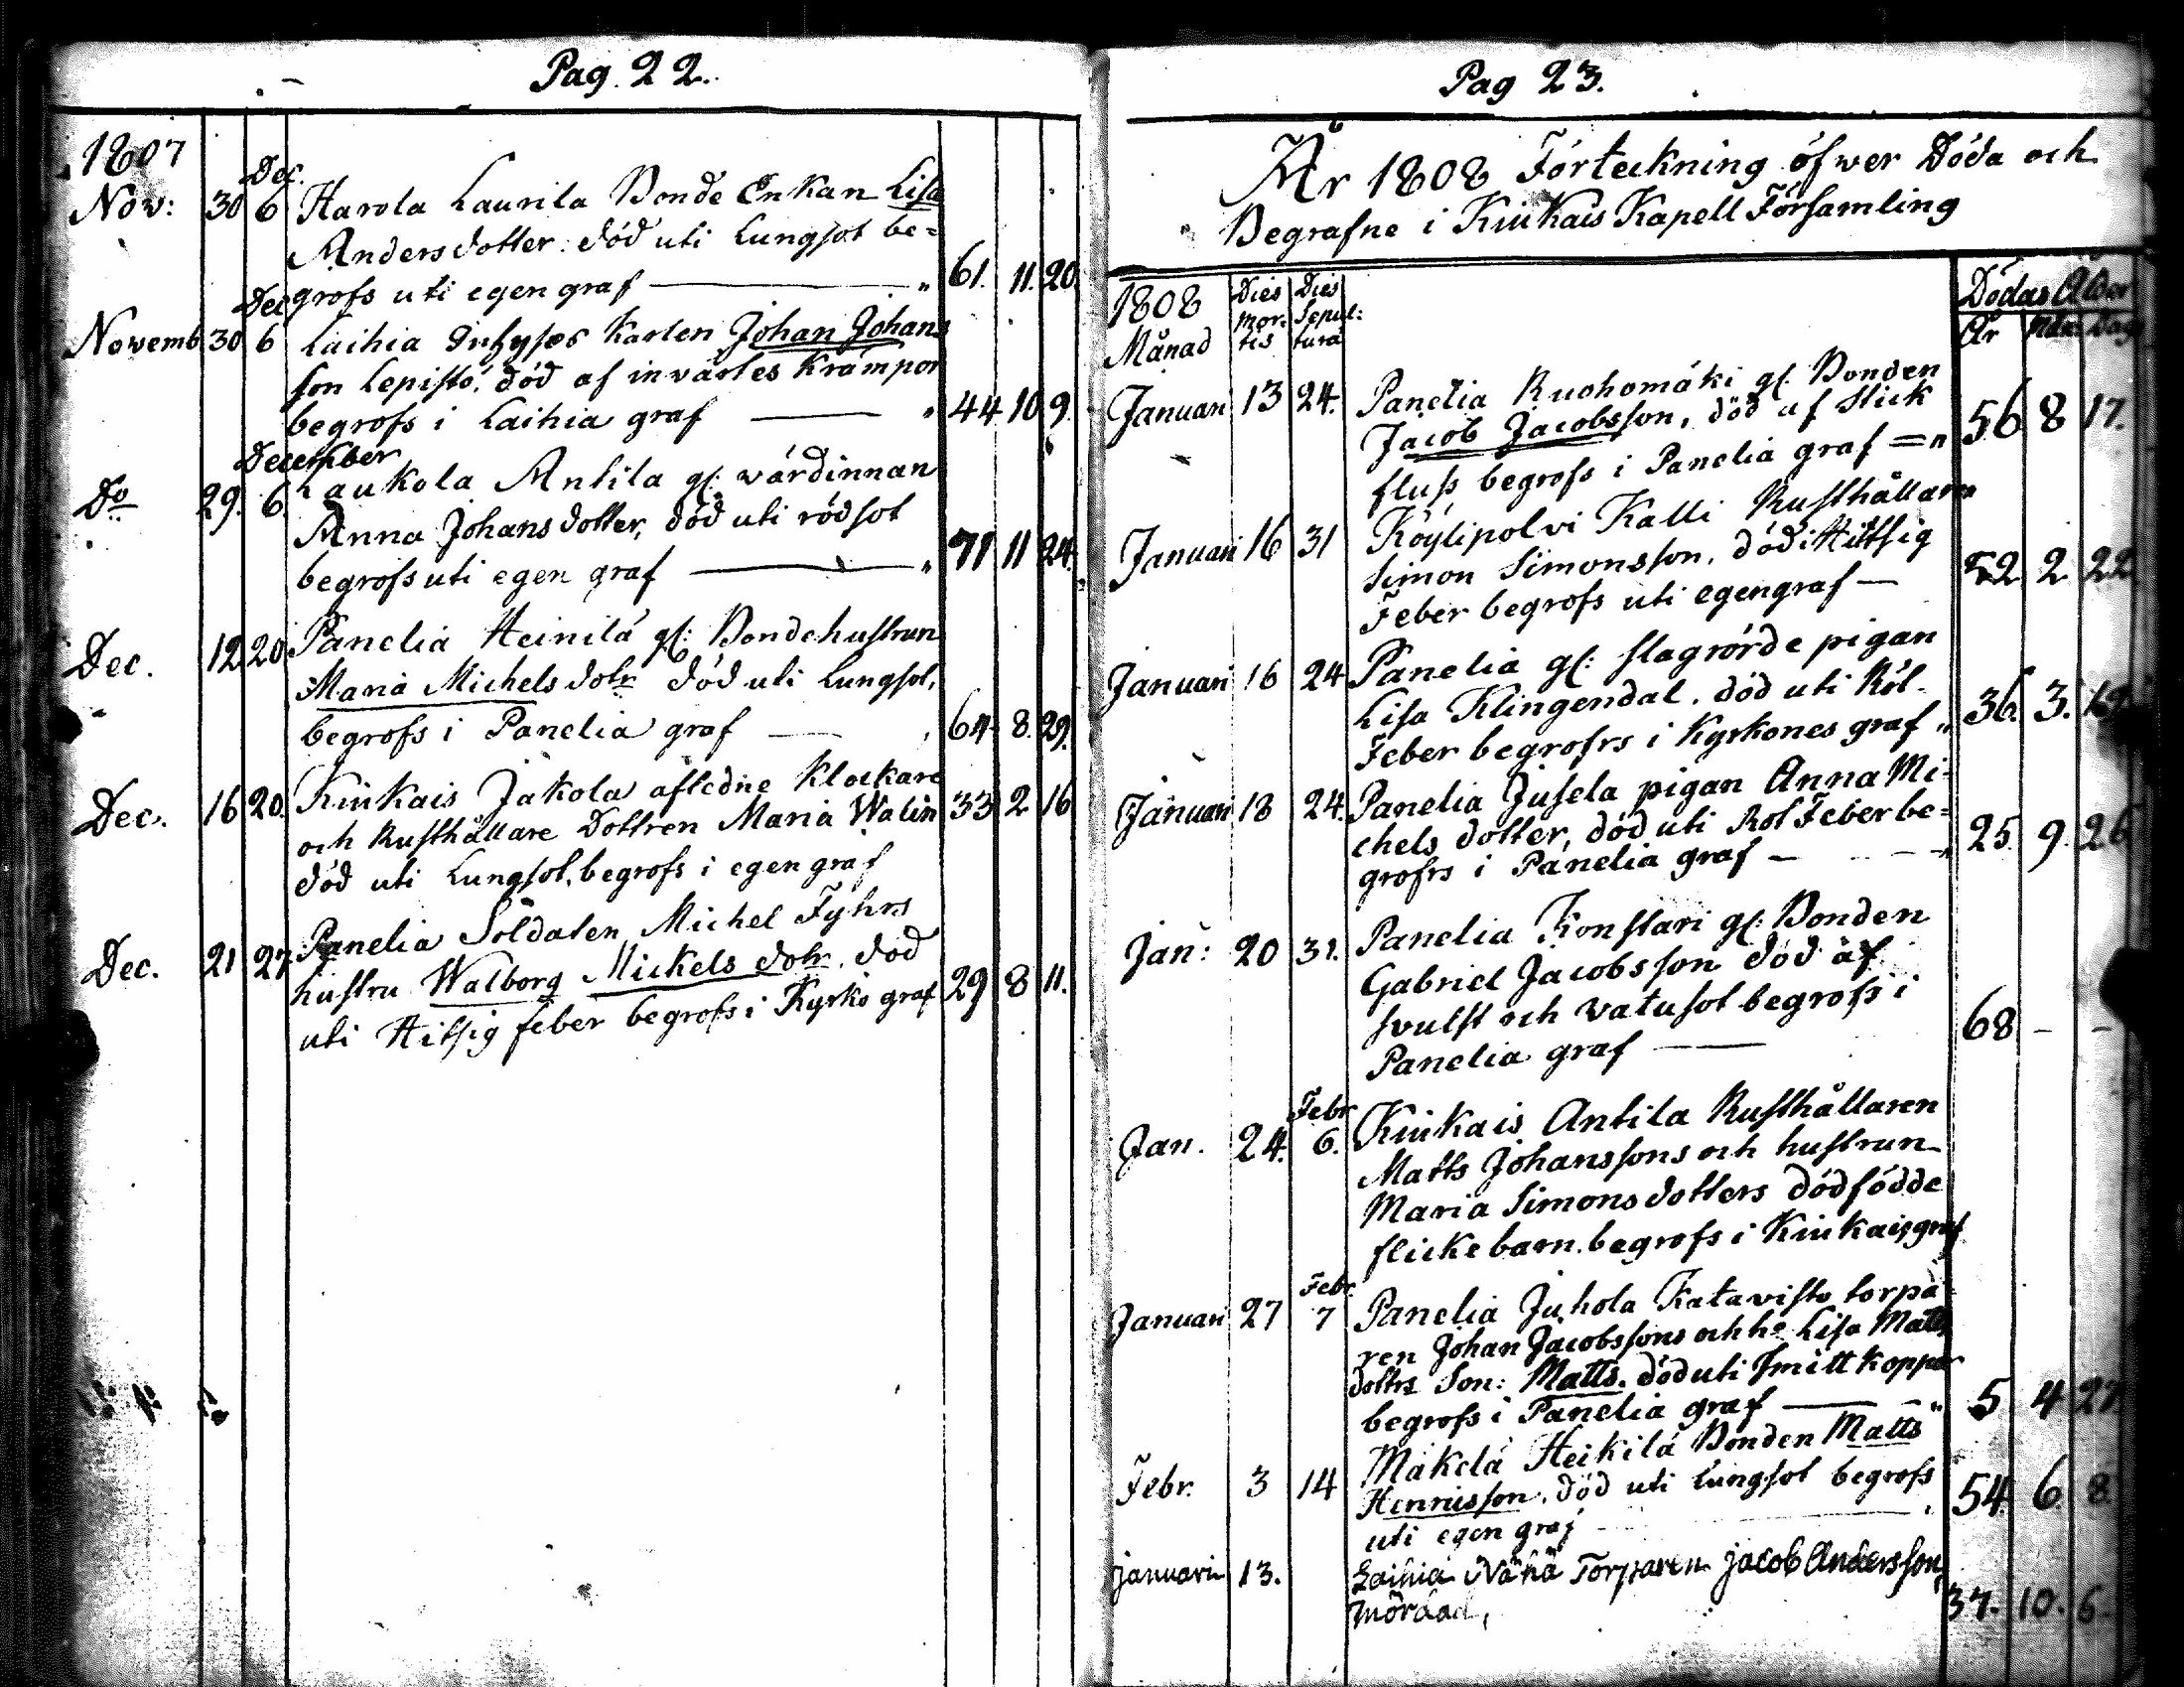 Pag. 22.
1807
Nov: 30 Dec. 6 Harola Laurila Bonde Enkan Lisa
Andersdotter. död uti Lungsot be=
grofs uti egen graf — " 61. 11. 20.
Novemb 30 Dec 6 Laihia Inhyses Karlen Johan Johans
son Lepistö, död af invärtes Krämpor
begrofs i Laihia graf — " 44 10 9.
Do 29. December 6. Laukola Antila gl: värdinnan
Anna Johansdotter, död uti rödsot
begrofs uti egen graf — " 71 11 24.
Dec. 12 20 Panelia Heinilä gl: Bondehustrun
Maria Michelsdotr död uti Lungsot,
begrofs i Panelia graf — 64 8. 29.
Dec. 16 20. Kiukais Jakola afledne Klockare
och Rusthållare Dottren Maria Walin 33 2 16
död uti Lungsot, begrofs i egen graf
Dec. 21 27 Panelia Soldaten Michel Fyhrs
hustru Walborg Mickels dotr. död
uti Hitsig feber begrofs i Kyrko graf 29 8 11.
Pag 23.
År 1808 Förteckning öfwer Döda och
Begrafne i Kiukais Kapell Församling
1808 Månad Dies mor= tis Dies Sepul: tura Dödas Ålder År Mån: Dag
Januari 13 24. Panelia Ruohomäki gl. Bonden
Jacob Jacobsson, död af Stick
fluss begrofs i Panelia graf = " 56 8 17.
Januari 16 31 Köylipolvi Kalli Rusthållaren
Simon Simonsson, död i Hittsig
Feber begrofs uti egen graf — 52 2 22
Januari 16 24 Panelia gl: slagrörde pigan
Lisa Klingendal. död uti Röt-
Feber begrofrs i Kyrkones graf " 36. 3. 19
Januari 18 24. Panelia Jusela pigan Anna Mi=
chels dotter, död uti Rot Feber be=
grofrs i Panelia graf — 25. 9. 26
Jan: 20 31. Panelia Konstari gl: Bonden
Gabriel Jacobsson död af
svulst och vatusot begrofs i
Panelia graf — 68 - -
Jan. 24. Febr 6. Kiukais Antila Rusthållaren
Matts Johanssons och hustrun
Maria Simons dotters dödfödde
flickebarn. begrofs i Kiukais graf
Januari 27 Febr. 7 Panelia Juhola Katavisto torpa=
ren Johan Jacobssons och he Lisa Matts
dottrs Son: Matts. död uti Smitt koppor
begrofs i Panelia graf — " 5 4 27
Febr. 3 14 Mäkelä Heikilä Bonden Matts
Henricsson. död uti Lungsot begrofs
uti egen graf 54. 6. 8.
januari 13. Laihia Nähä Torparen jacob Andersson,
mördad, 37. 10. 6.